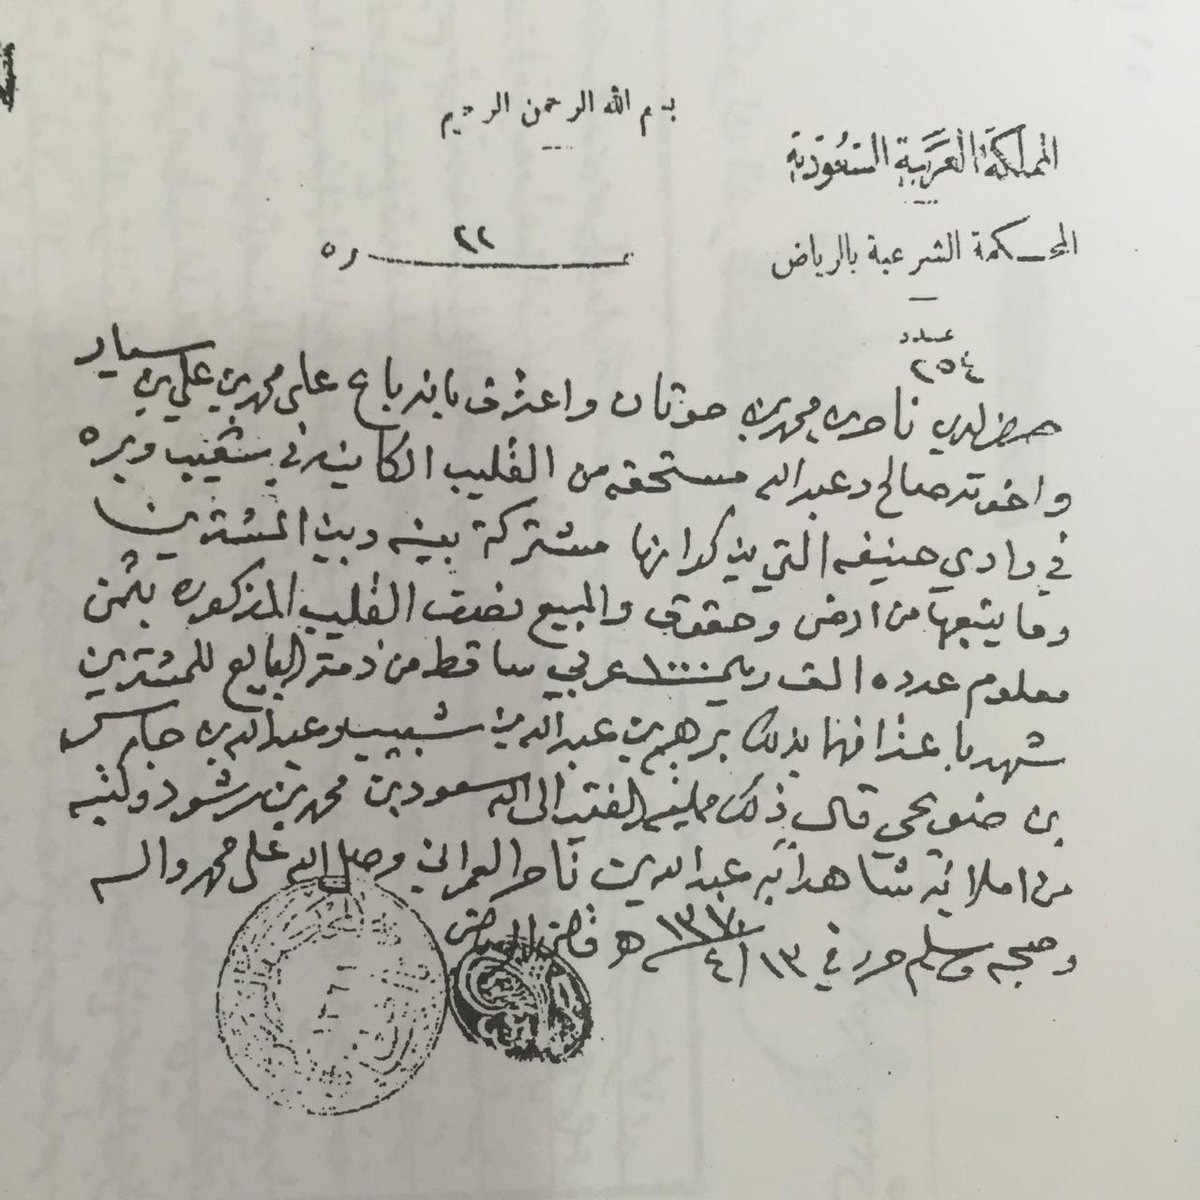 بسم الله الرحمن الرحيم
المملكة العربية السعودية
المحكمة الشرعية بالرياض
٢٢
عدد
٢٥٤
حضر لدي ناصر بن محمد بن حوتان واعترف بانه باع على محمد بن علي بن سيار
واخوته صالح وعبدالله مستحقه من القليب الكاينه في شعيب وبره
في وادي حنيفه التي يذكر انها مشتركة بينه وبين المشترين
وما يتبعها من ارض وحقوق والمبيع نصف القليب المذكوره بثمن
معلوم عدده الف ريال ١٠٠٠ عربي ساقط من ذمة البايع للمشترين
شهد باعترافهما بذلك برهيم بن عبدالله بن شبيب وعبدالله بن جابر
بن ضويحي قال ذلك ممليه الفقير الى الله سعود بن محمد بن رشود وكتبه
من املائه شاهدا به عبدالله بن ناصر العمراني وصلى الله على محمد واله
وصحبه وسلم حرر في ١٣/٤/١٣٧٠ هـ قاضي الرياض